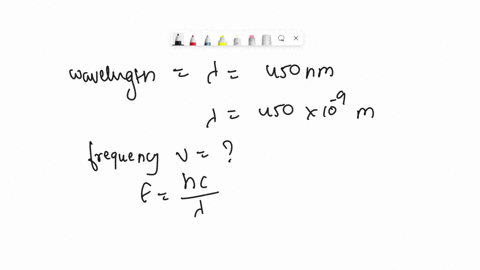 wavelength = λ = 450 nm
λ = 450 × 10⁻⁹ m
frequency ν = ?
E = hc/λ